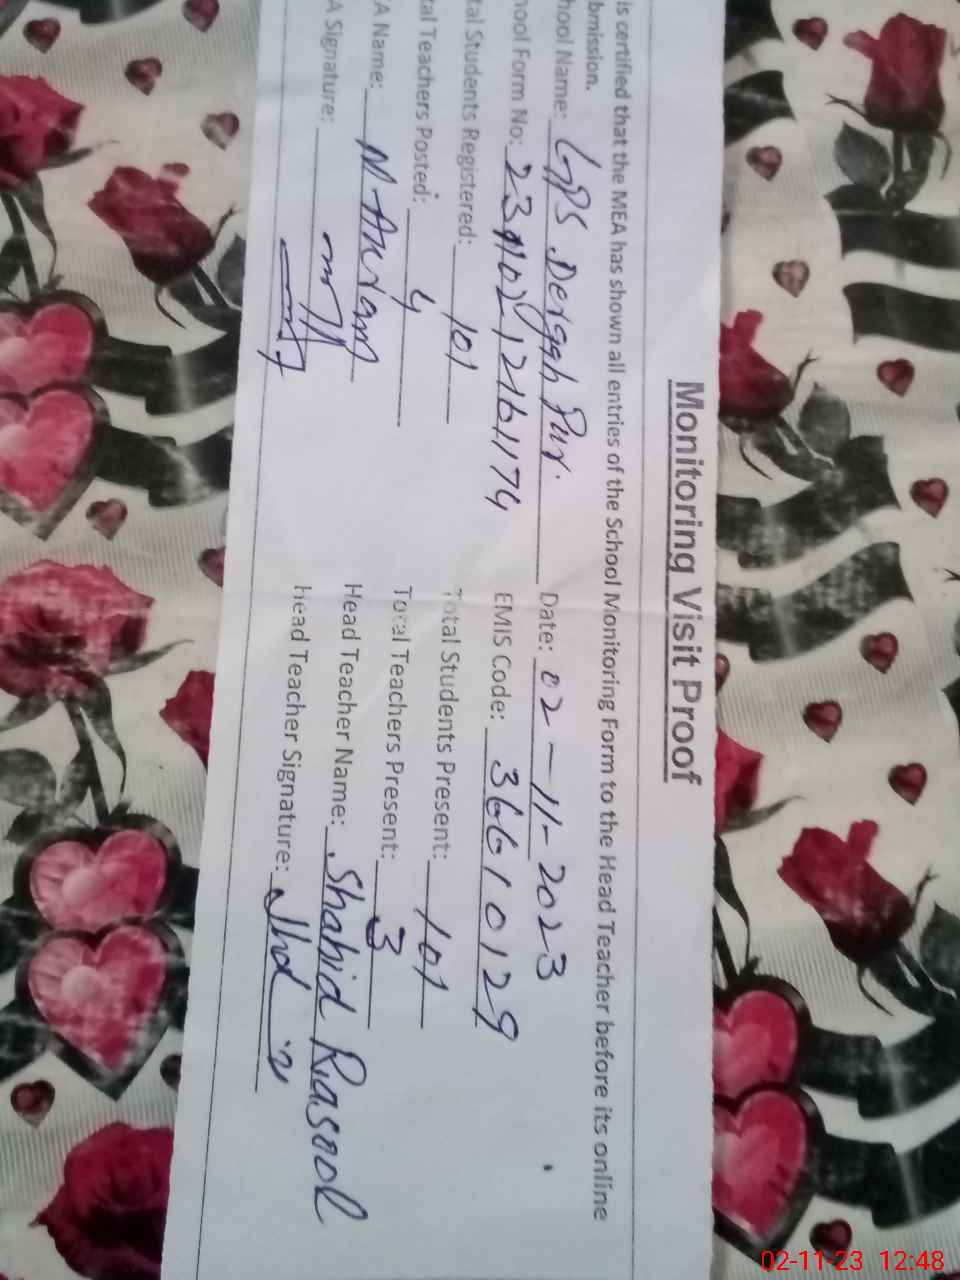 Monitoring Visit Proof
is certified that the MEA has shown all entries of the School Monitoring Form to the Head Teacher before its online
bmission.
hool Name: GPS Dergah Pur. Date: 02-11-2023
hool Form No: EMIS Code: 36610129
tal Students Registered: 101 Total Students Present: 101
tal Teachers Posted: 4 Total Teachers Present: 3
A Name: M Akram Head Teacher Name: Shahid Rasool
A Signature: Head Teacher Signature:
02-11-23 12:48